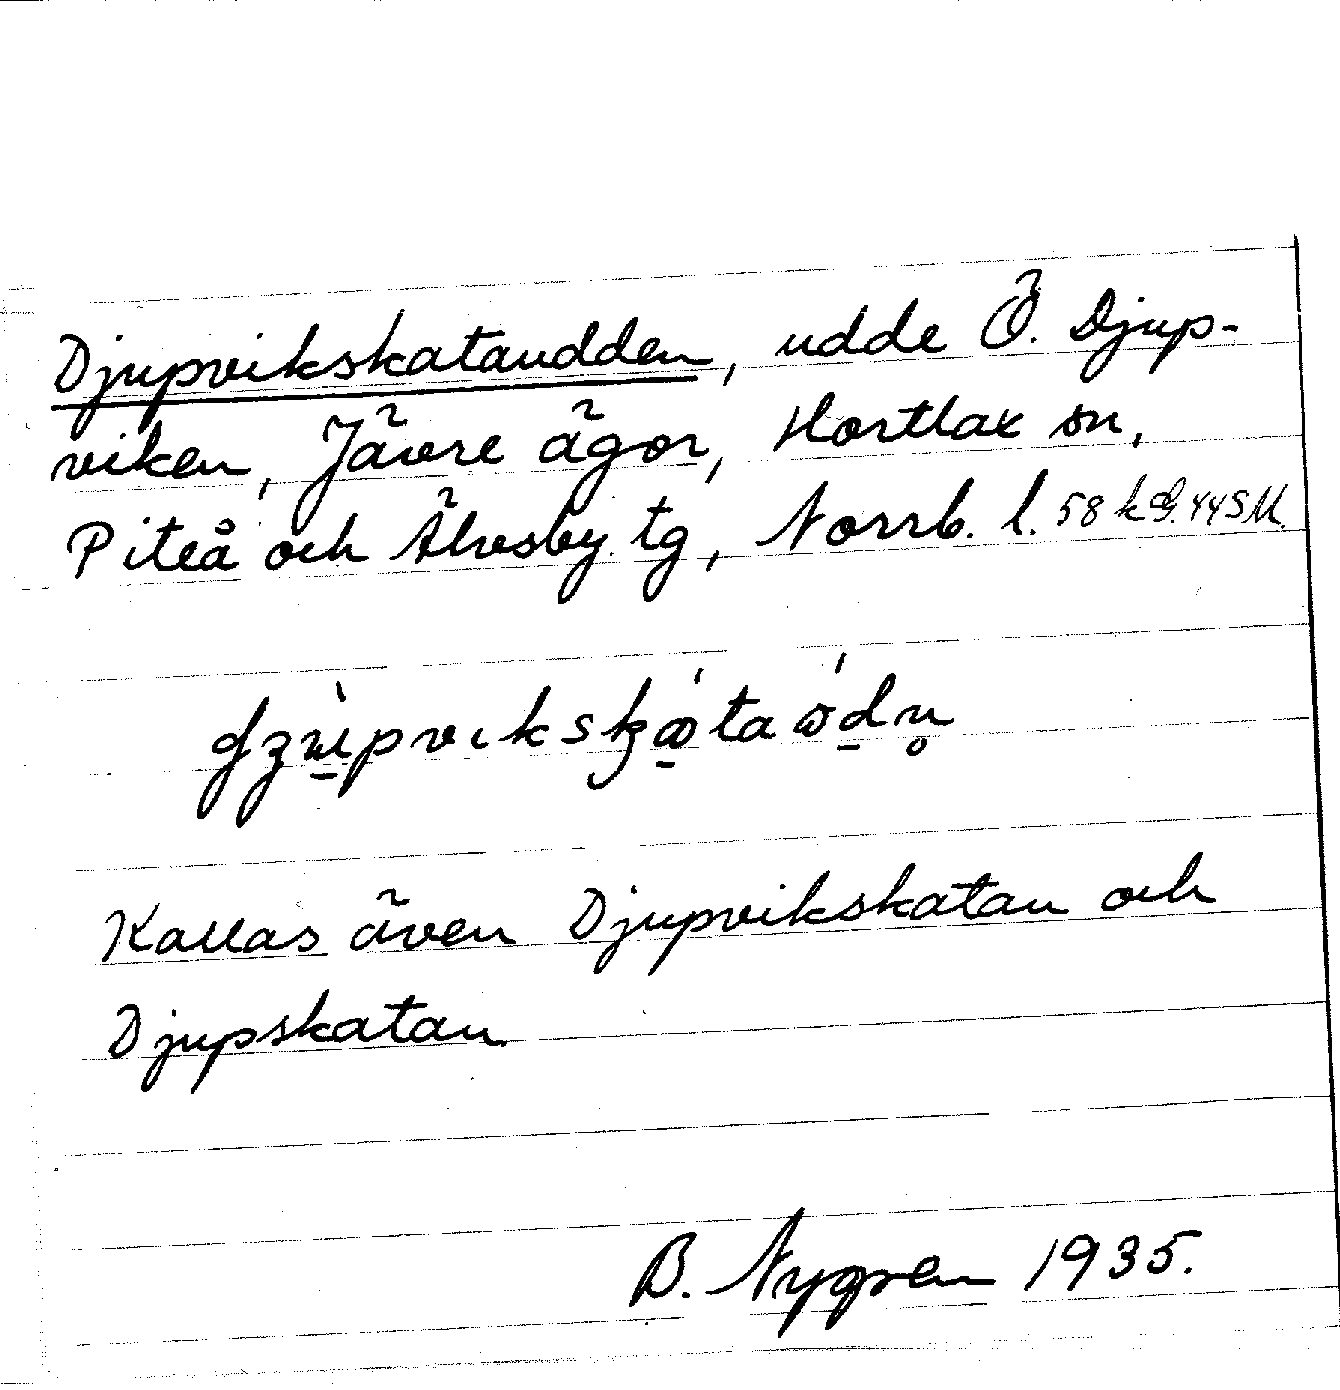 Djupvikskataudden, udde Ö. Djup-
viken, Jävre ägor, Hortlax sn,
Piteå och Älvsby tg, Norrb. l. 58 k
Kallas även Djupvikskatan och
Djupskatan
B. Nygren 1935.